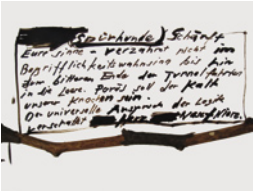 Spürhunde) Schärft
Eure sinne – verzahnt nicht im
Begrifflichkeitswahnsinn bis hin
dem bitteren Ende der Tunnelfahrten
in die Leere. Porös soll der Kalk
unserer Knochen sein.
Der universelle Anspruch der Logik
verschafft Herz